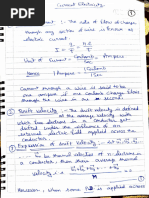 Current Electricity
①
Electric current :- The rate of flow of charge
through any section of wire is known as
electric current.
I = q/t = ne/t
Unit of Current = Coulomb/Second = Ampere
Hence 1 Ampere = 1 Coulomb/1 Sec
Current through a wire is said to be
one ampere if one Coulomb charge flows
through the wire in one second.
Drift velocity :- Drift velocity is defined
as the average velocity with
which free electrons in a conductor
get drifted under the influence of an
external electric field applied across the
conductor.
Expression of Drift Velocity :-
be thermal velocities of n electrons in
a conductor then their average thermal
velocity
= 0
However, when some p.d is applied across